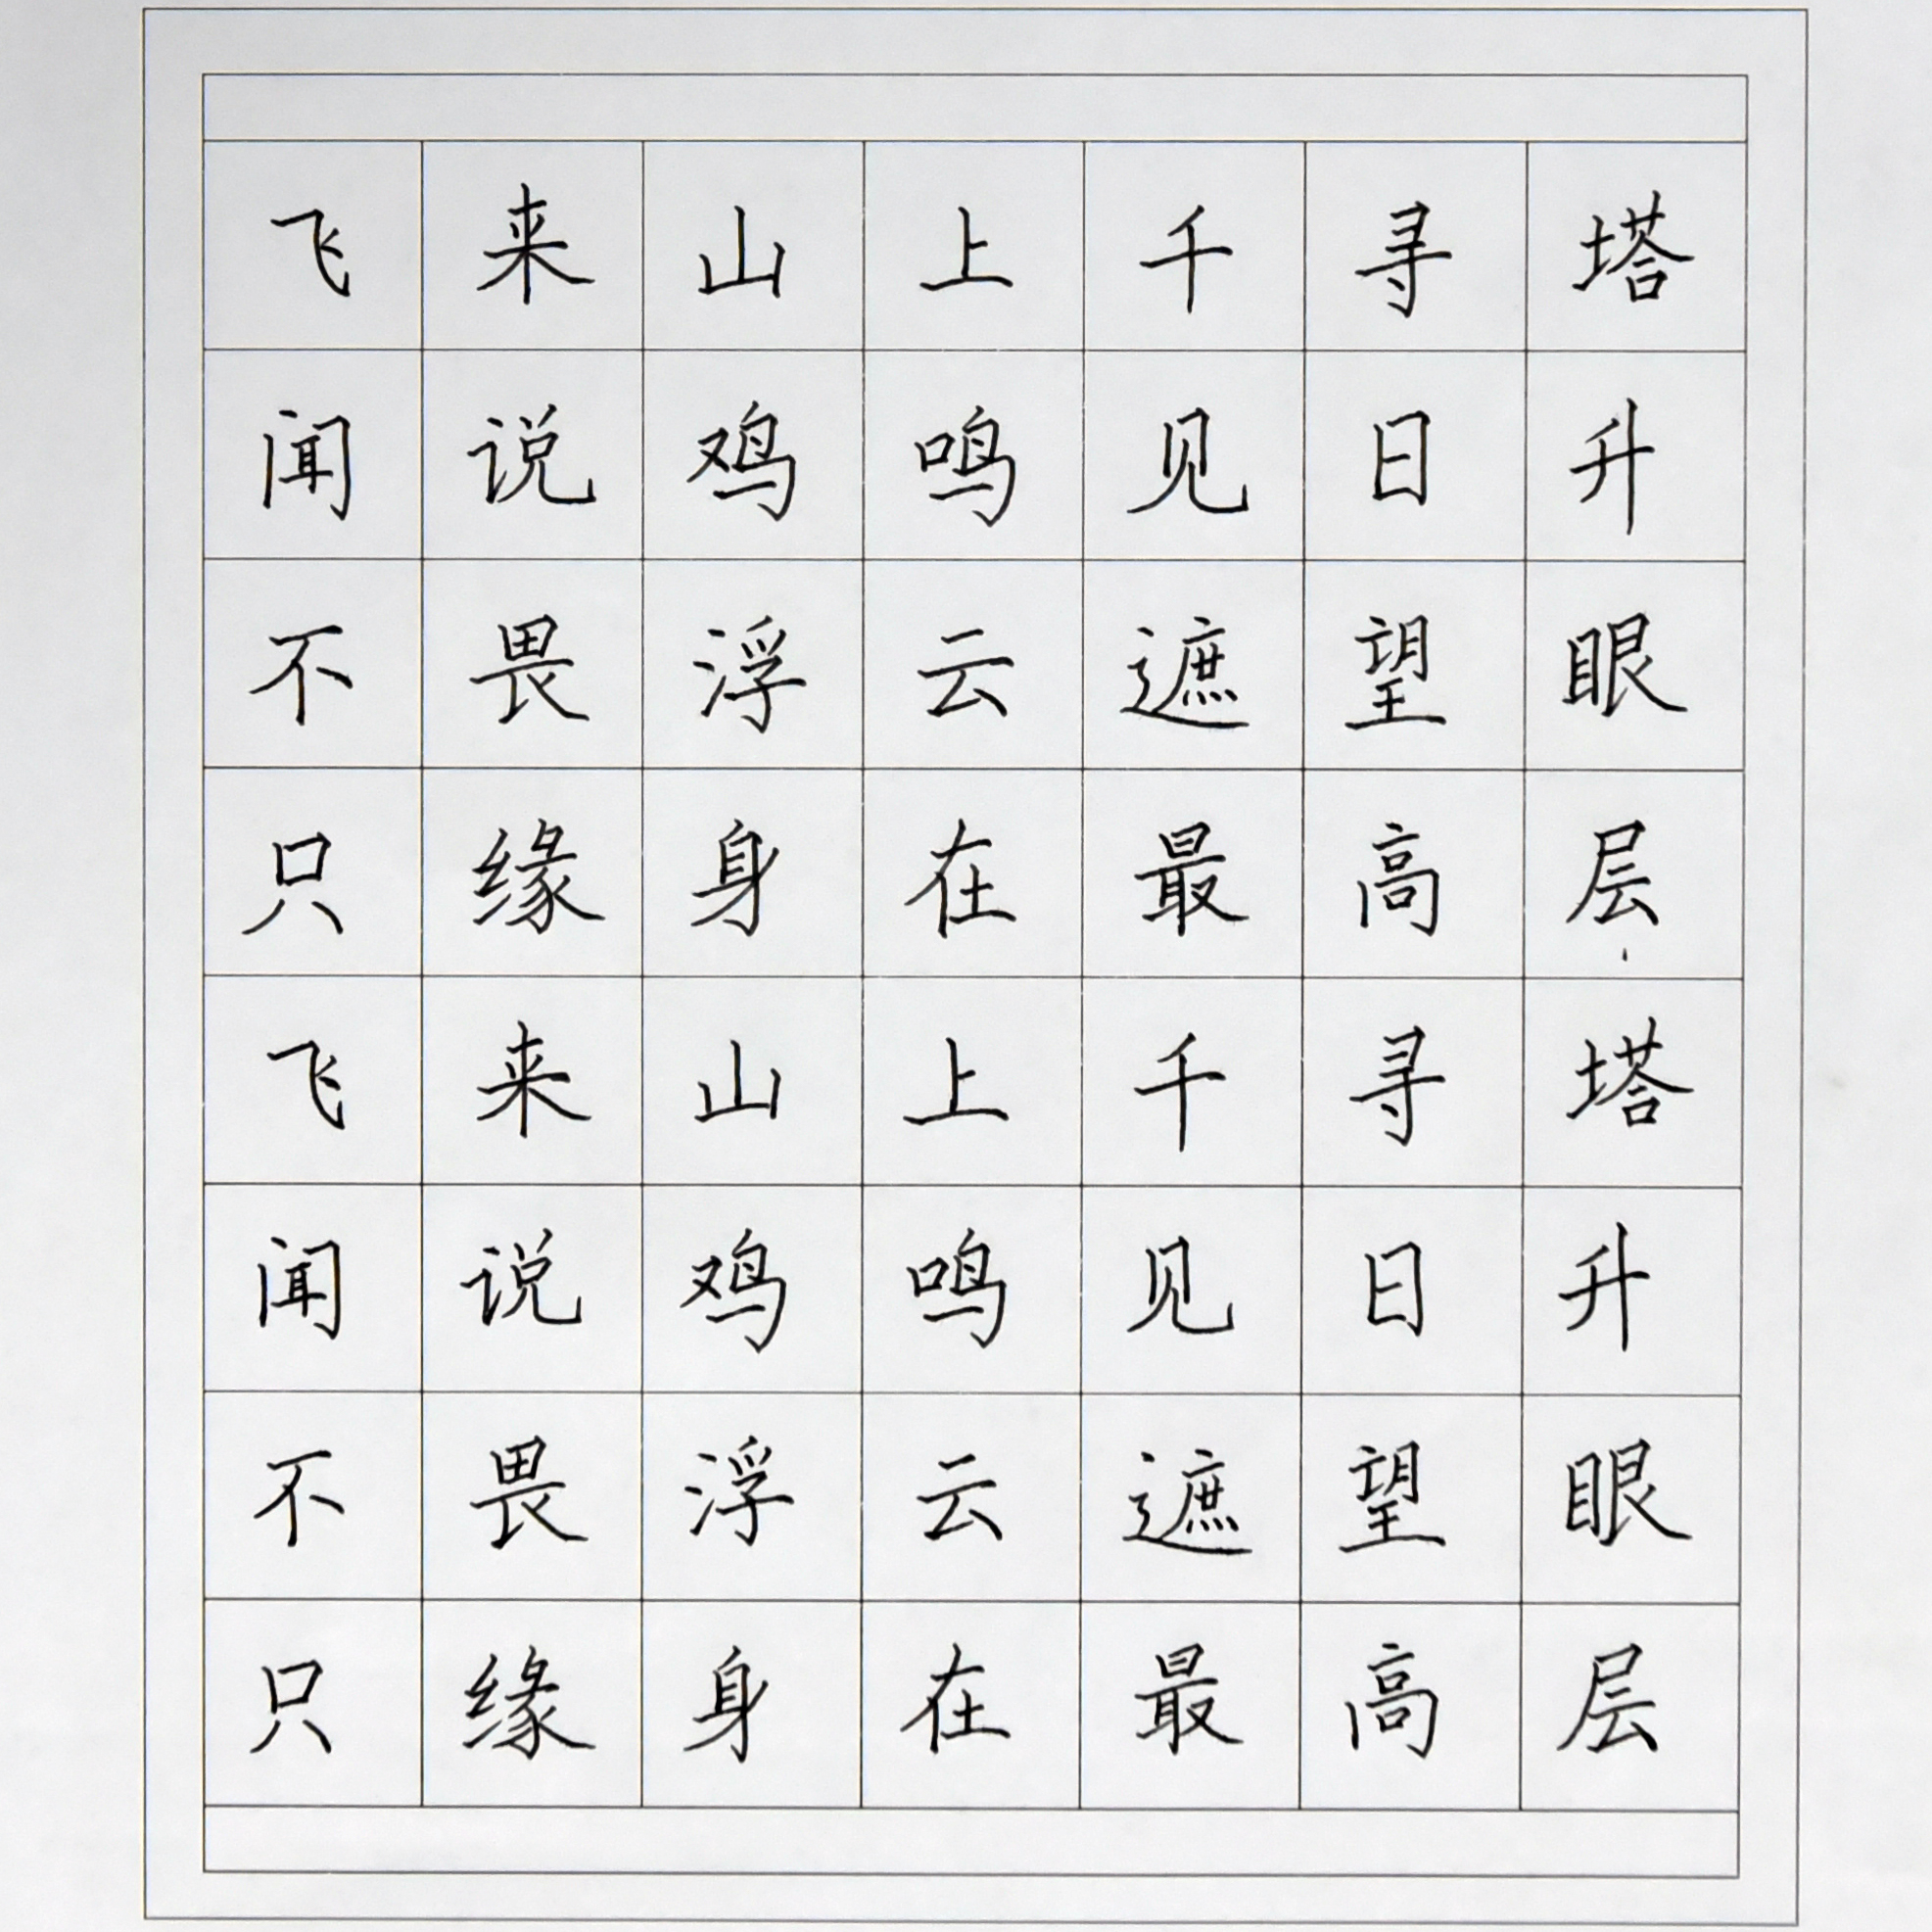 飞来山上千寻塔
闻说鸡鸣见日升
不畏浮云遮望眼
只缘身在最高层
飞来山上千寻塔
闻说鸡鸣见日升
不畏浮云遮望眼
只缘身在最高层